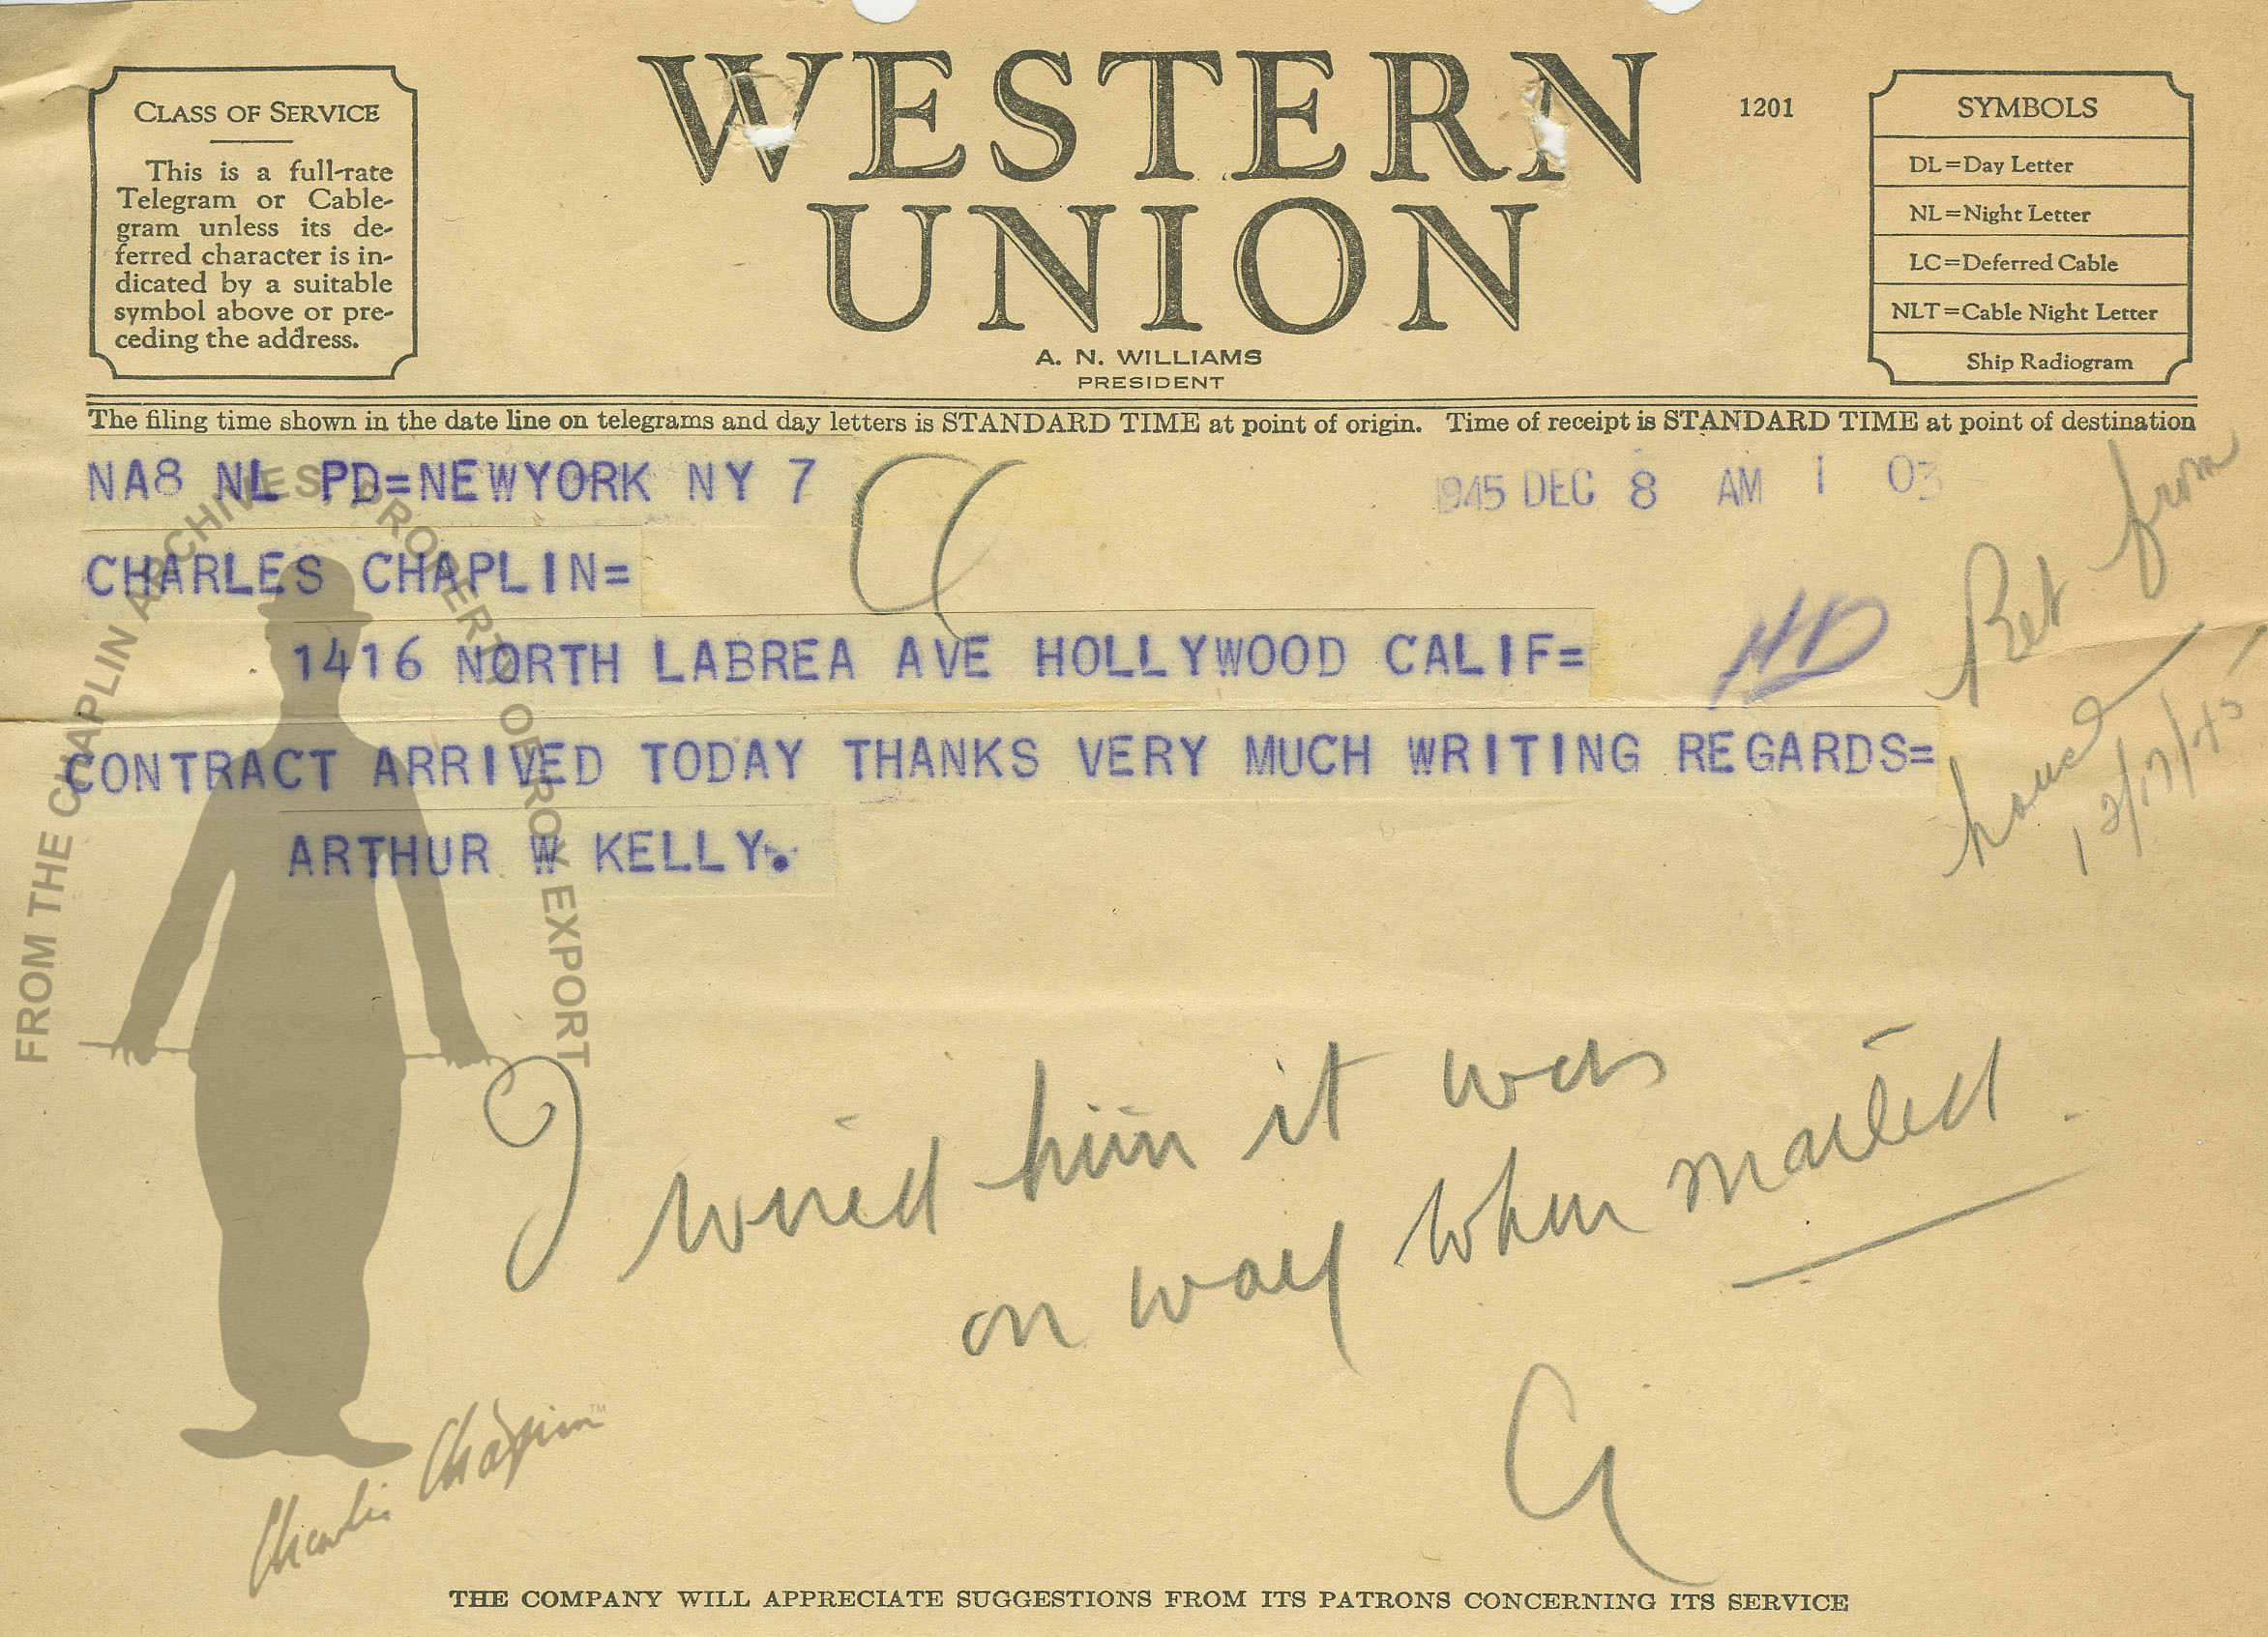 WESTERN
UNION
1201
A. N. WILLIAMS
PRESIDENT
CLASS OF SERVICE
This is a full-rate
Telegram or Cable-
gram unless its de-
ferred character is in-
dicated by a suitable
symbol above or pre-
ceding the address.
SYMBOLS
DL=Day Letter
NL=Night Letter
LC=Deferred Cable
NLT=Cable Night Letter
Ship Radiogram
The filing time shown in the date line on telegrams and day letters is STANDARD TIME at point of origin. Time of receipt is STANDARD TIME at point of destination
NA8 NL PD=NEWYORK NY 7
1945 DEC 8 AM 1 03
CHARLES CHAPLIN=
1416 NORTH LABREA AVE HOLLYWOOD CALIF=
HD
Ret from
house
12/17/45
CONTRACT ARRIVED TODAY THANKS VERY MUCH WRITING REGARDS=
ARTHUR W KELLY.
I wired him it was
on way when mailed.
FROM THE CHAPLIN ARCHIVES PROPERTY OF ROY EXPORT
Charlie Chaplin TM
THE COMPANY WILL APPRECIATE SUGGESTIONS FROM ITS PATRONS CONCERNING ITS SERVICE